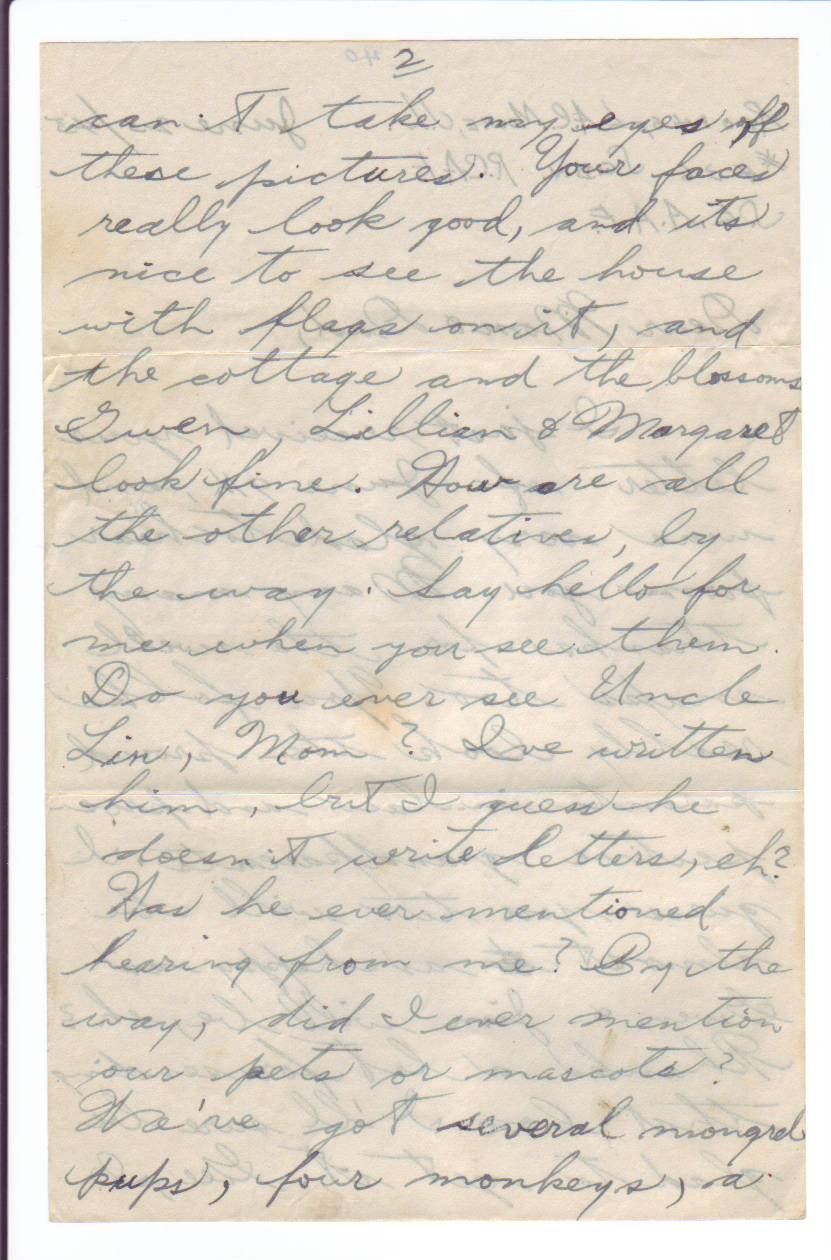 2
can't take my eyes off
these pictures. Your faces
really look good, and its
nice to see the house
with flags on it, and
the cottage and the blossoms
Gwen, Lillian & Margaret
look fine. How are all
the other relatives, by
the way. Say hello for
me when you see them.
Do you ever see Uncle
Lin, Mom? I've written
him, but I guess he
doesn't write letters, eh?
Has he ever mentioned
hearing from me? By the
way, did I ever mention
our pets or mascots?
We've got several mongrel
pups, four monkeys, a